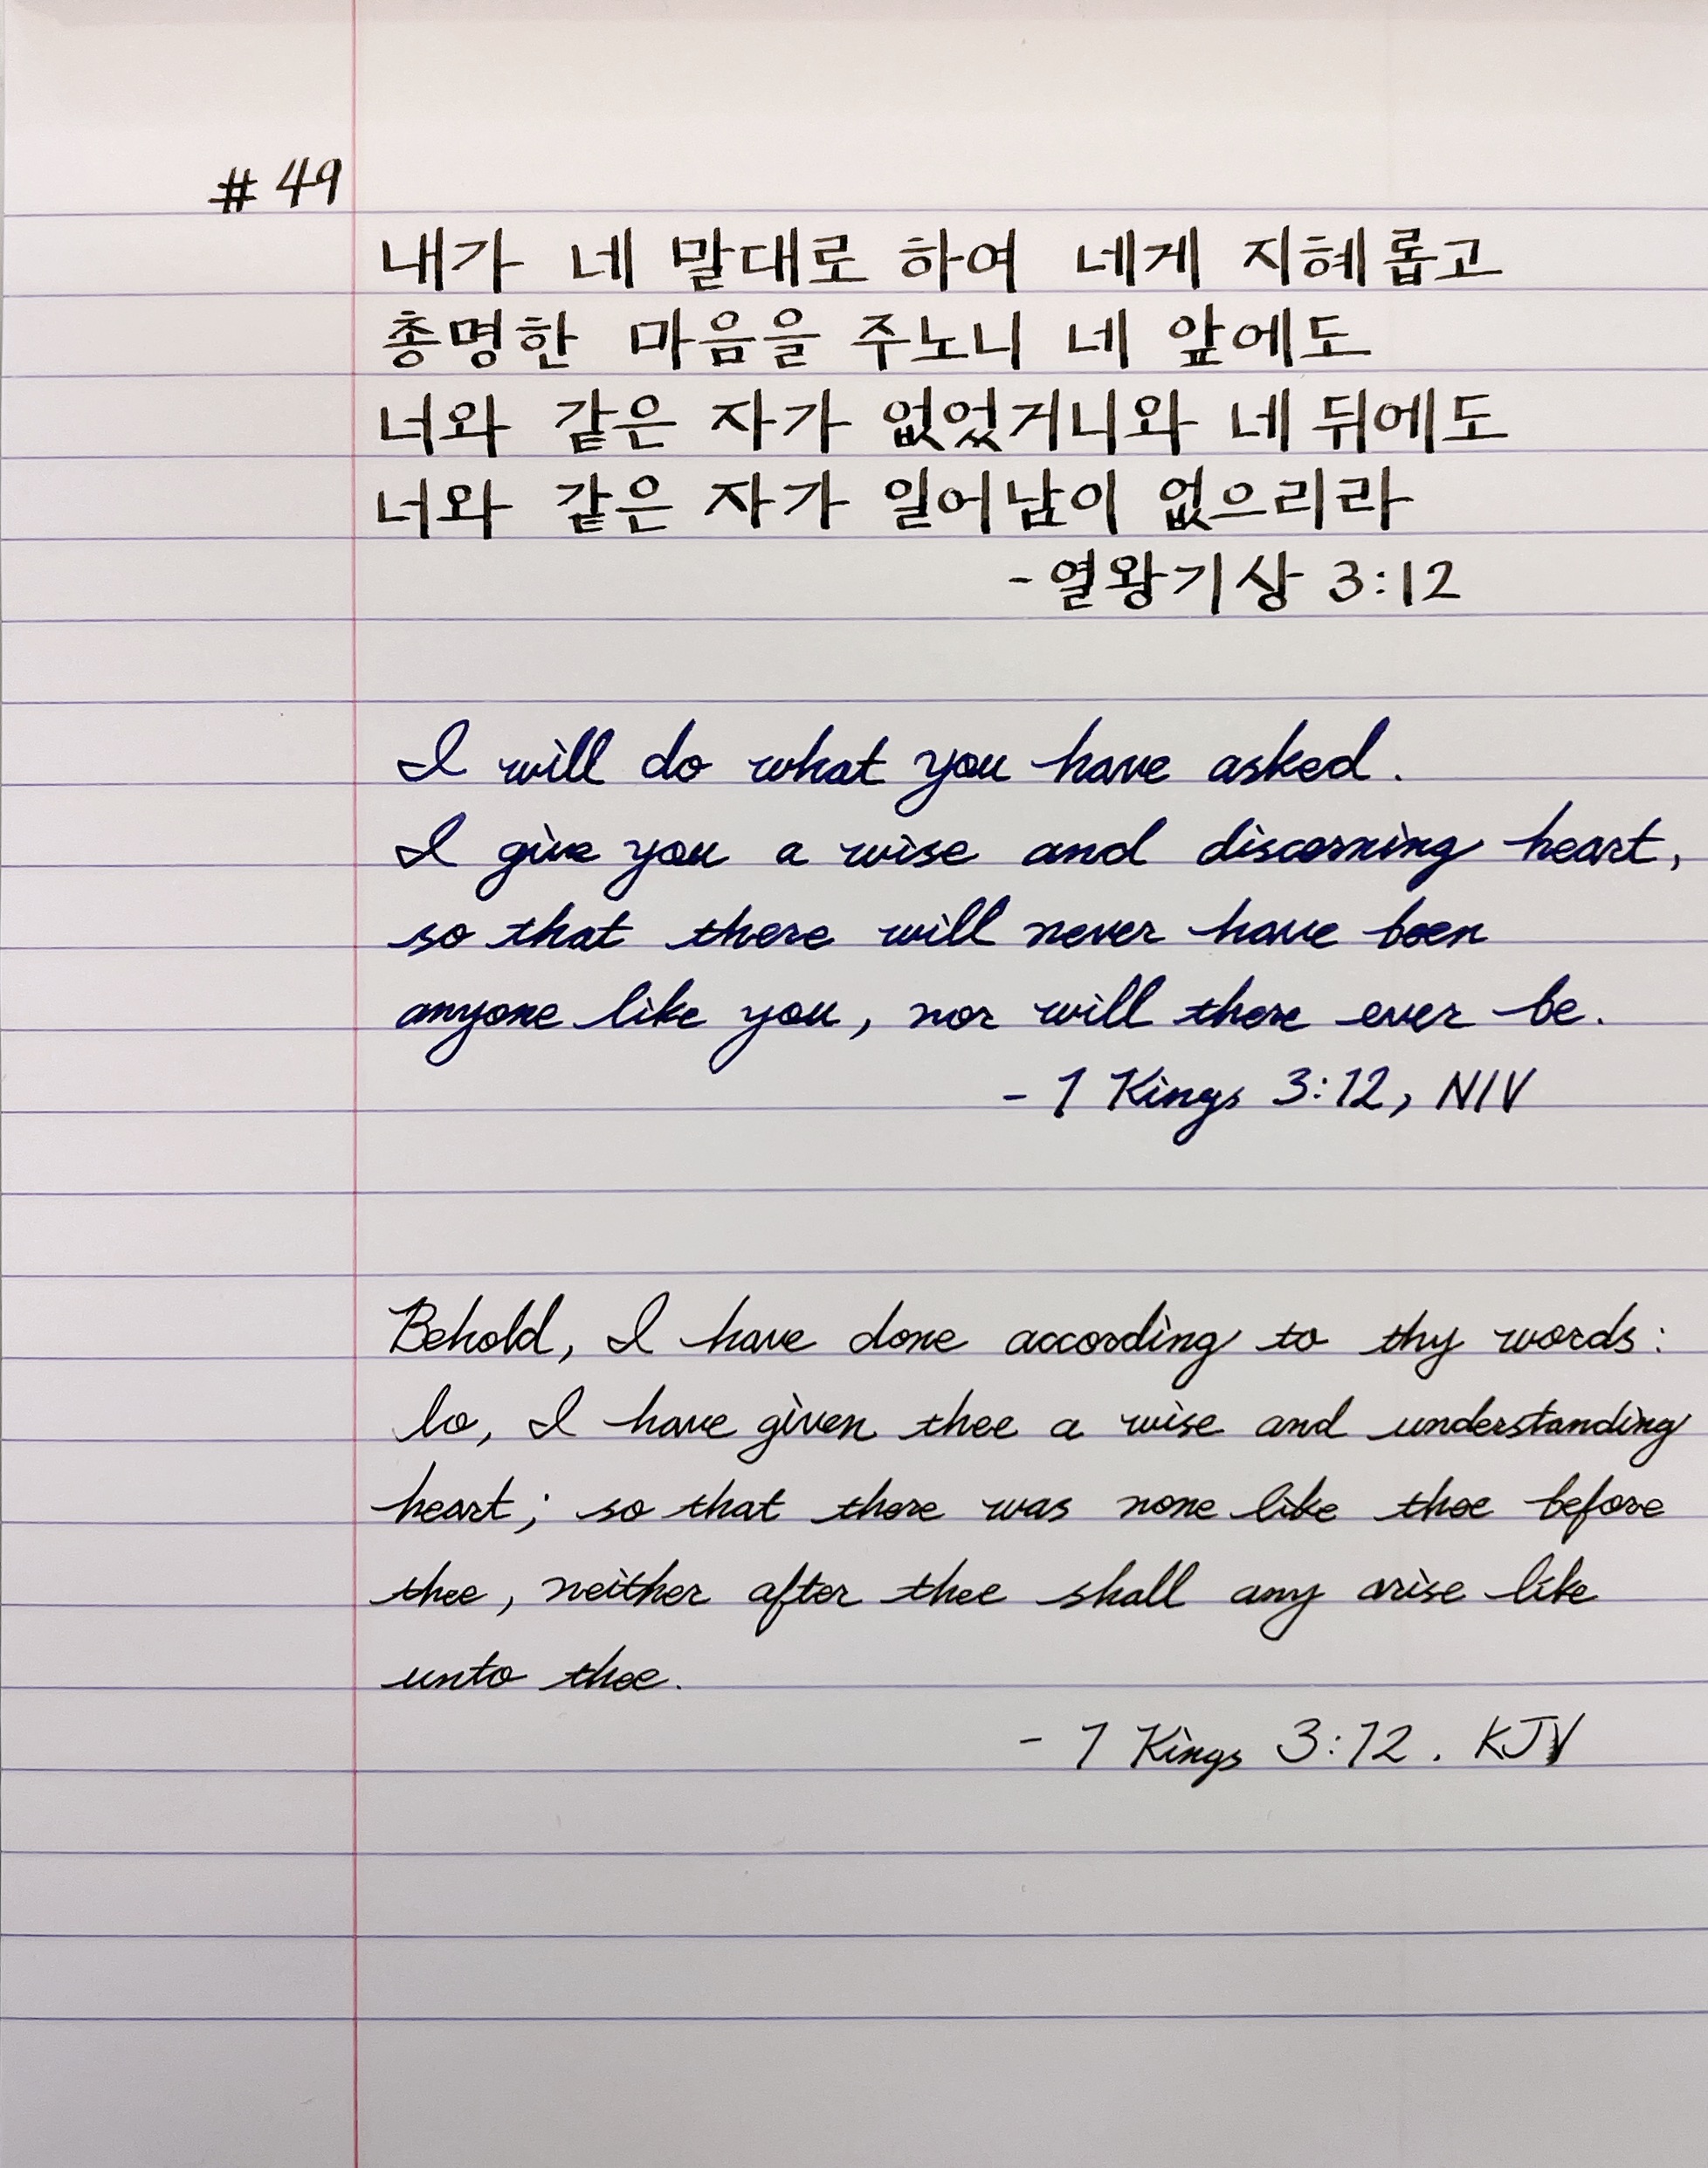 # 49
내가 네 말대로 하여 네게 지혜롭고
총명한 마음을 주노니 네 앞에도
너와 같은 자가 없었거니와 네 뒤에도
너와 같은 자가 일어남이 없으리라
- 열왕기상 3:12
I will do what you have asked.
I give you a wise and discerning heart,
so that there will never have been
anyone like you, nor will there ever be.
- 1 Kings 3:12, NIV
Behold, I have done according to thy words:
lo, I have given thee a wise and understanding
heart; so that there was none like thee before
thee, neither after thee shall any arise like
unto thee.
- 1 Kings 3:12. KJV